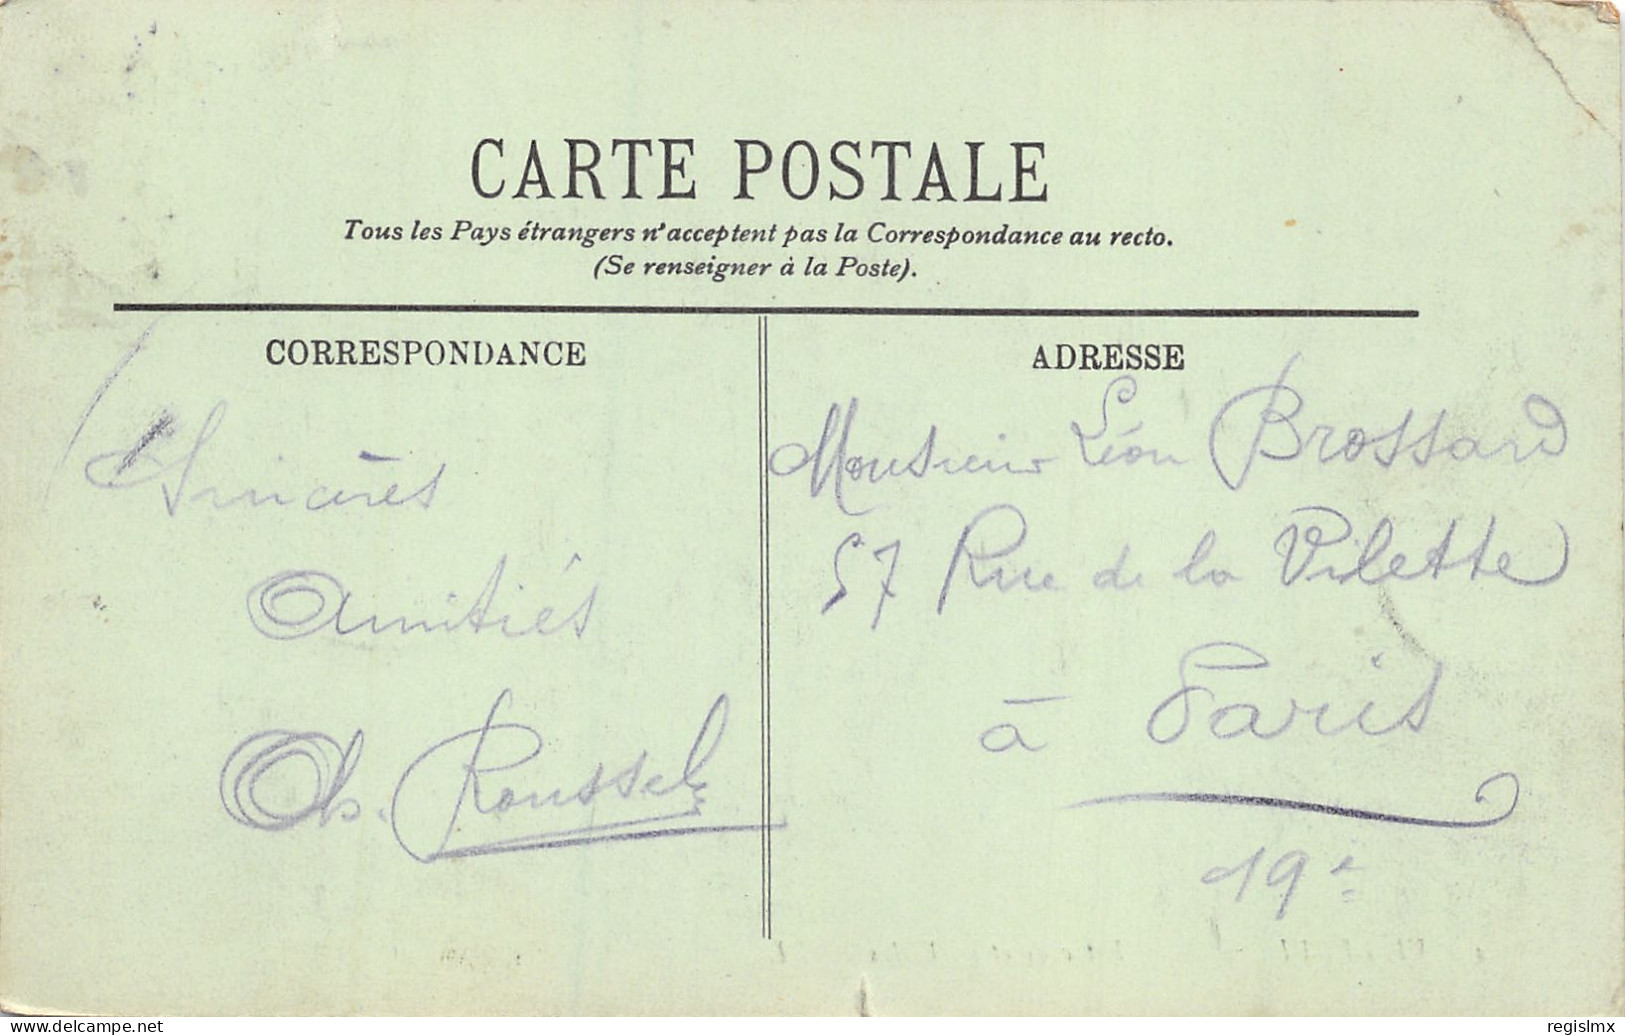 CARTE POSTALE
Tous les Pays étrangers n'acceptent pas la Correspondance au recto.
(Se renseigner à la Poste).
CORRESPONDANCE
Sincères
Amitiés
Ch. Roussel
ADRESSE
Monsieur Léon Brossard
57 Rue de la Vilette
à Paris
19e
www.delcampe.net
regislmx